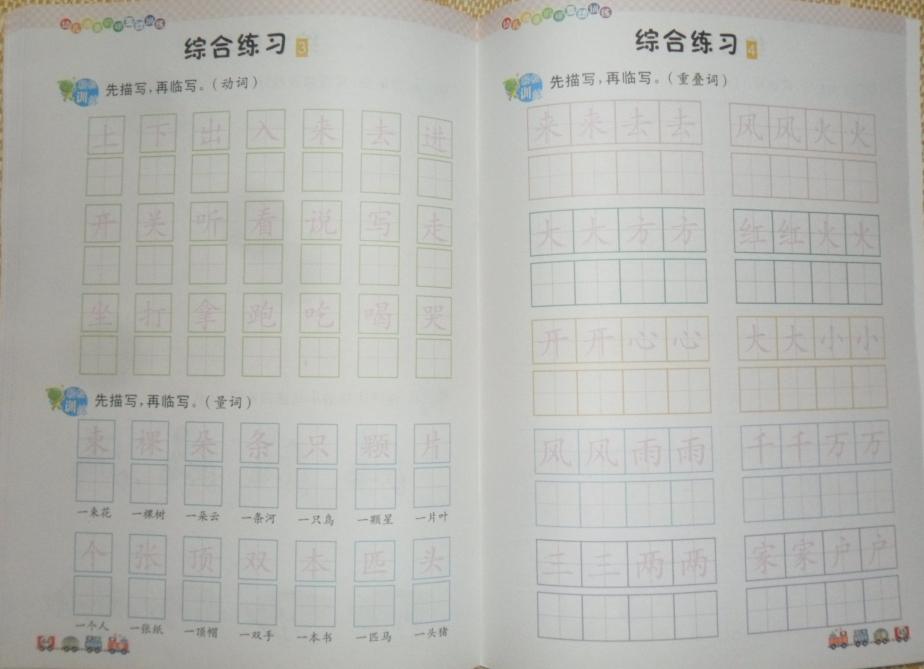 综合练习 3
先描写，再临写。（动词）
上 下 出 入 来 去 进
开 关 听 看 说 写 走
坐 打 拿 跑 吃 喝 哭
先描写，再临写。（量词）
束 棵 朵 条 只 颗 片
一束花 一棵树 一朵云 一条河 一只鸟 一颗星 一片叶
个 张 顶 双 本 匹 头
一个人 一张纸 一顶帽 一双手 一本书 一匹马 一头猪
综合练习 4
先描写，再临写。（重叠词）
来来去去 风风火火
大大方方 红红火火
开开心心 大大小小
风风雨雨 千千万万
三三两两 家家户户